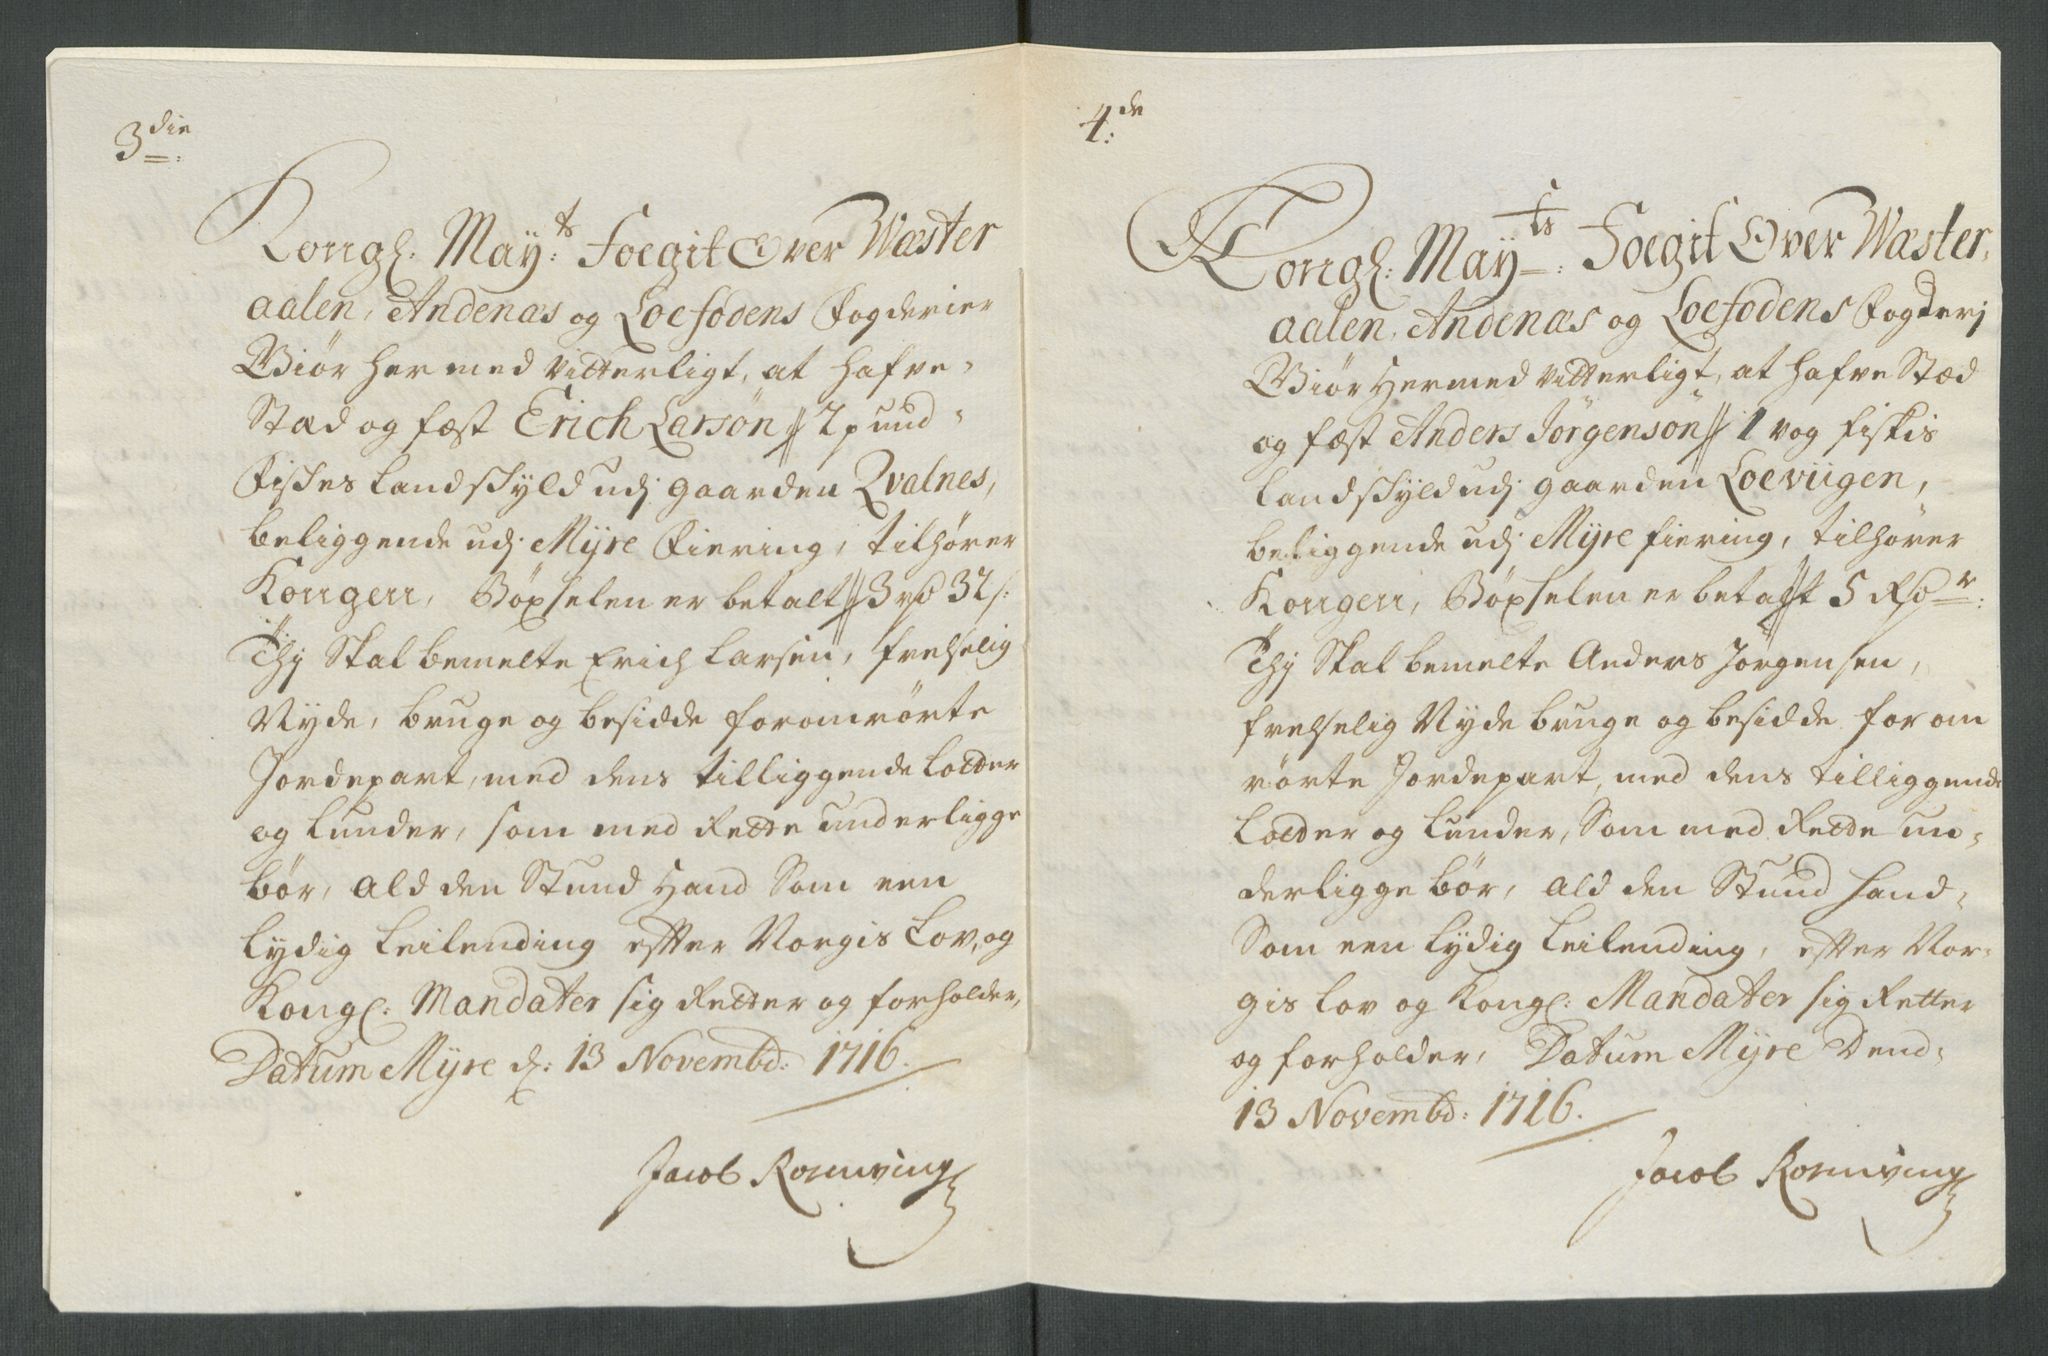 3die
Kongl: Mayts: Foegit Over Wæster
aalen, Andenæs og Loefodens Fogderier
Giör her med vitterligt, at hafve
Stæd og fæst Erich Larsøn // 2 pund
Fisches Landschyld udj gaarden Qvalnes,
beliggende udj Myre Fiering, tilhører
Kongen, Böxselen er betalt // 3 rd 32 s:
Thj Skal bemelte Erich Larsen, frelselig
Nyde, bruge og besidde foromrörte
Jordepart, med dens tilliggende Lotter
og Lunder, som med Rette underligge
bör, ald den Stund Hand Som een
lydig Leilending effter Norgis Lov, og
Kongl: Mandater sig Retter og forholder,
Datum Myre d: 13 Novembr: 1716.
Jacob Rosenving
4de
Kongl: Mayts: Foegit Over Wæster,
aalen, Andenæs og Loefodens Fogderj
Giör Hermed vitterligt, at hafve Stæd
og fæst Anders Jörgensøn // 1 vog fiskis
Landschyld udj gaarden Loeviigen,
beliggende udj Myre fiering, tilhører
Kongen, Böxselen er betalt 5 Rdr:
Thj Skal bemelte Anders Jörgensen,
frelselig Nyde bruge og besidde forom
rörte Jordepart, med dens tilliggende
Lotter og Lunder, Som med Rette un-
derligge bör, ald den Stund hand
Som een lydig Leilending, effter Nor-
gis Lov og Kongl: Mandater sig Retter
og forholder, Datum Myre Dend
13 Novembr: 1716.
Jacob Rosenving